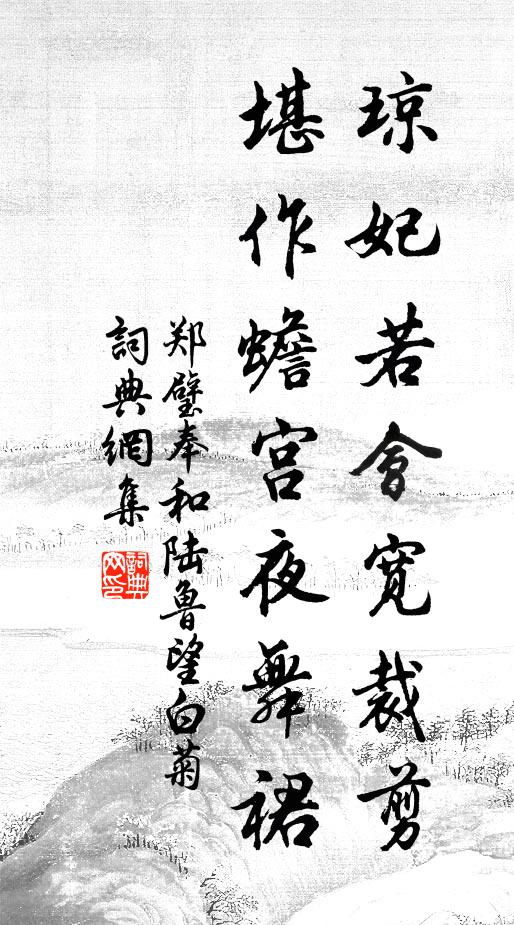 琼妃若會寛裁剪
堪作蟾宫夜舞裙
郑璧奉和陆鲁望白菊
詞典網集
詞典网印